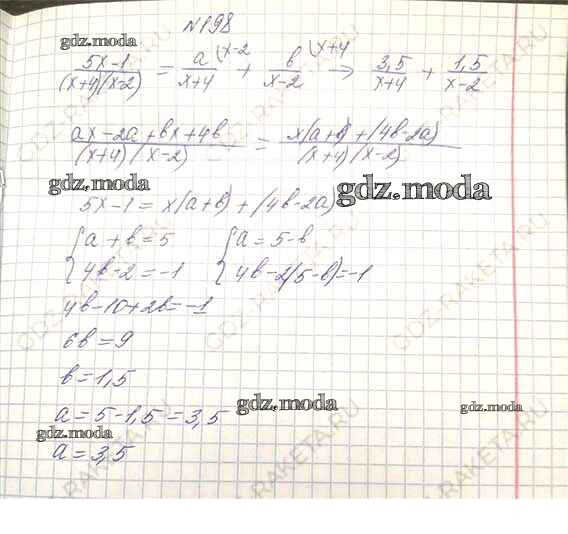 №198
(5x-1)/((x+4)(x-2)) = a/(x+4) (x-2 + b/(x-2) (x+4 → 3,5/(x+4) + 1,5/(x-2)
(ax-2a+bx+4b)/((x+4)(x-2)) = (x(a+b)+(4b-2a))/((x+4)(x-2))
5x-1 = x(a+b)+(4b-2a)
{a+b=5 {a=5-b
{4b-2=-1 {4b-2(5-b)=-1
4b-10+2b=-1
6b=9
b=1,5
a=5-1,5=3,5
a=3,5
gdz.moda
gdz.moda
gdz.moda
gdz.moda
gdz.moda
gdz.moda
GDZ-RAKETA.RU
GDZ-RAKETA.RU
GDZ-RAKETA.RU
GDZ-RAKETA.RU